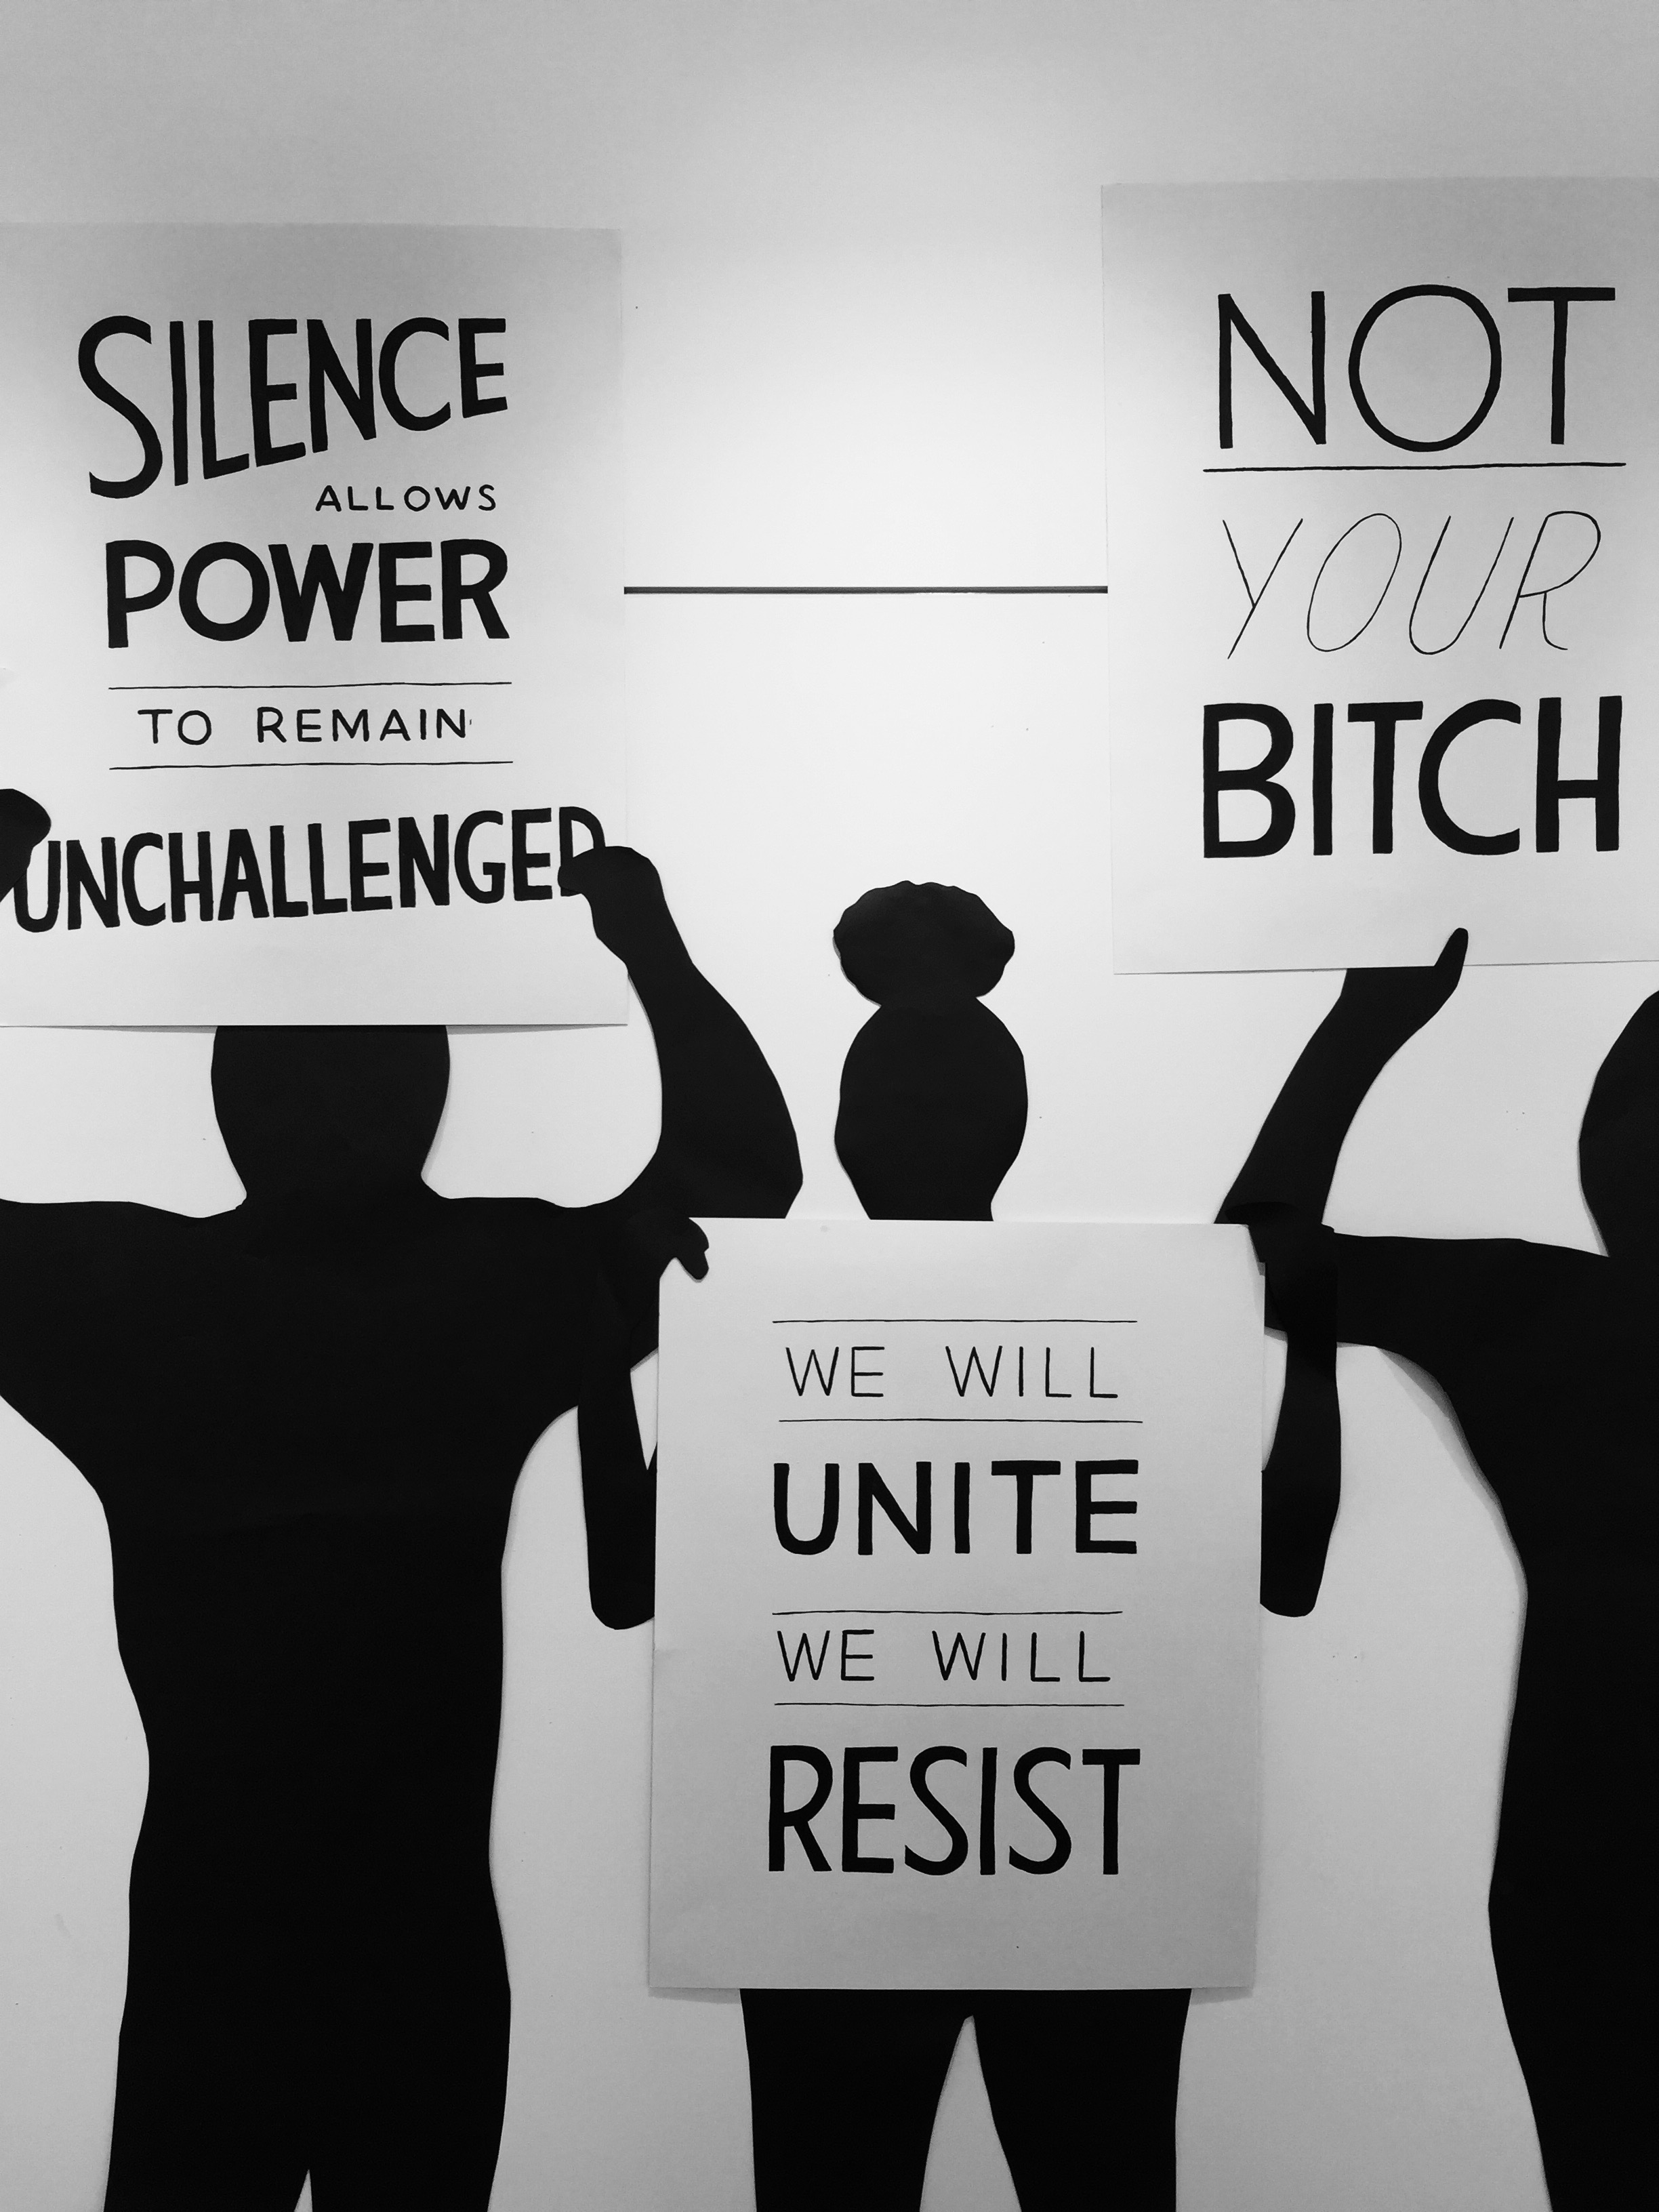 SILENCE
ALLOWS
POWER
TO REMAIN
UNCHALLENGED
NOT
YOUR
BITCH
WE WILL
UNITE
WE WILL
RESIST